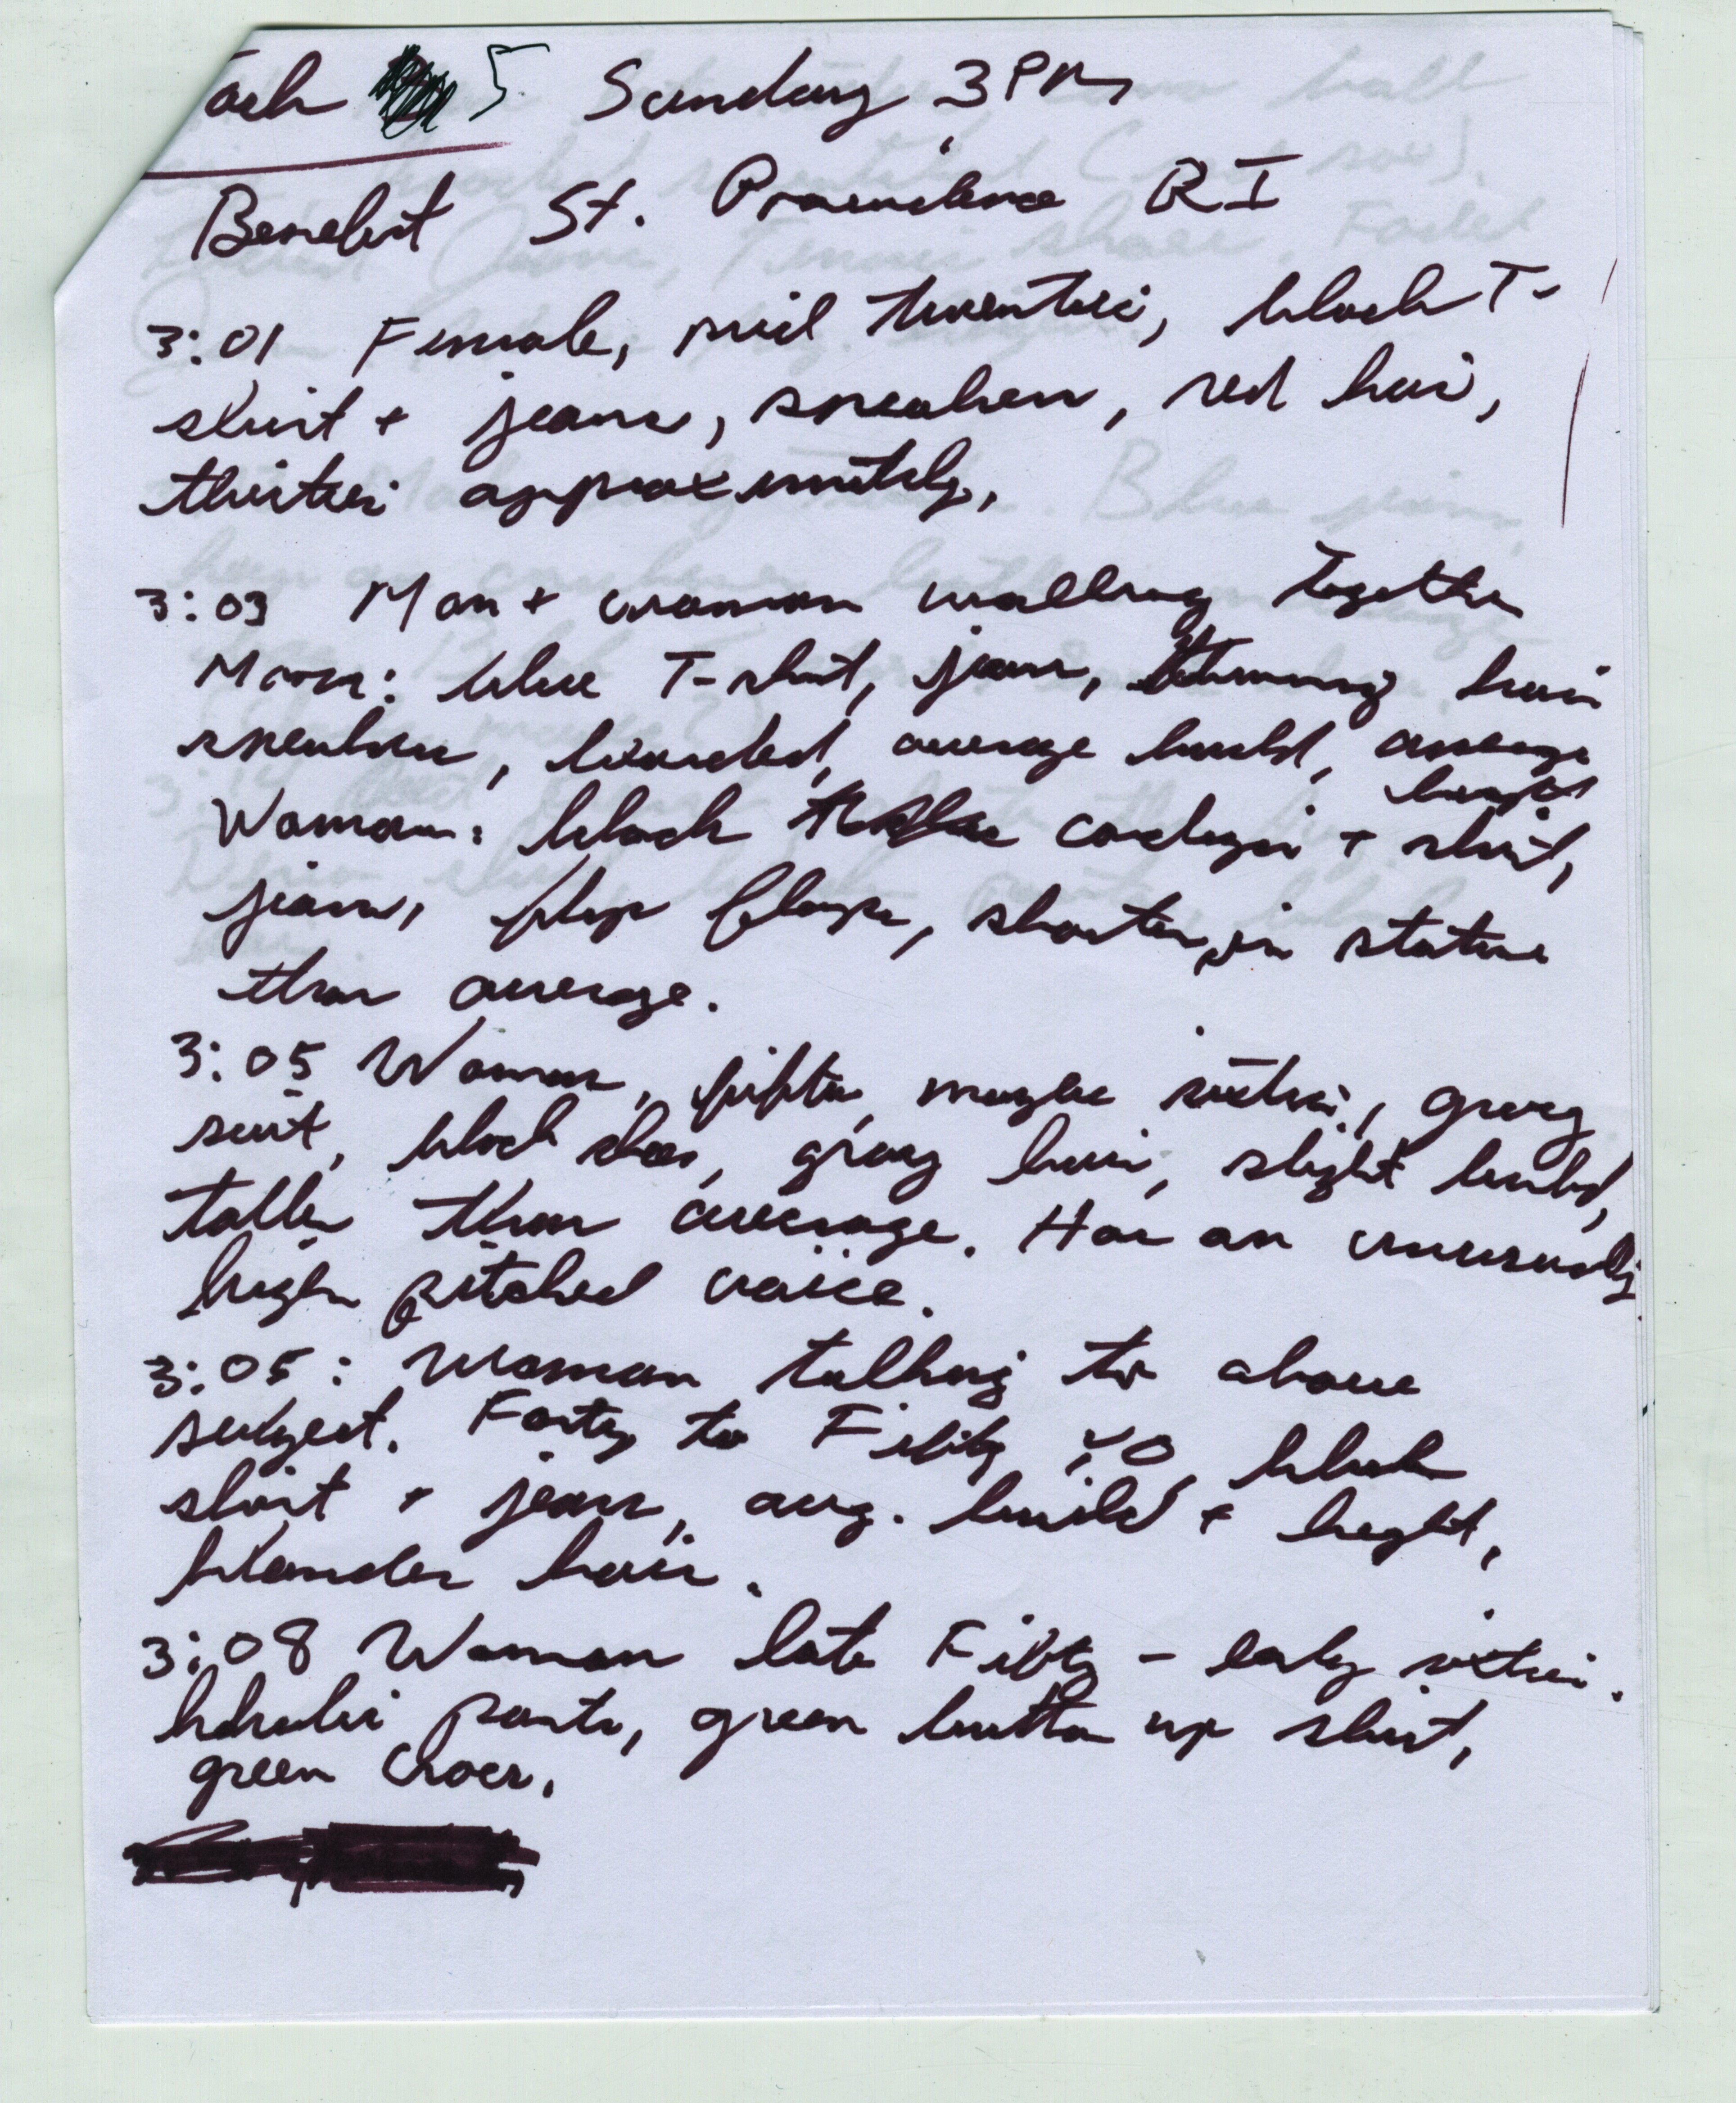 5 Sunday 3PM
Benefit St. Providence RI
3:01 Female, mid twenties, black T-
shirt + jeans, sneakers, red hair,
thirties approximately,
3:03 Man + woman walking together
Man: blue T-shirt, jeans, thinning hair
sneakers, bearded, average build, average
height
Woman: black cardigan + shirt,
jeans, flip flops, shorter in stature
than average.
3:05 Woman, fifties maybe sixties, grey
suit, black shoes, gray hair, slight build,
taller than average. Has an unusually
high pitched voice.
3:05: Woman talking to above
subject. Forty to Fifty YO, black
shirt + jeans, avg. build + height,
blonde hair.
3:08 Woman late Fifty - early sixties.
khaki pants, green button up shirt,
green